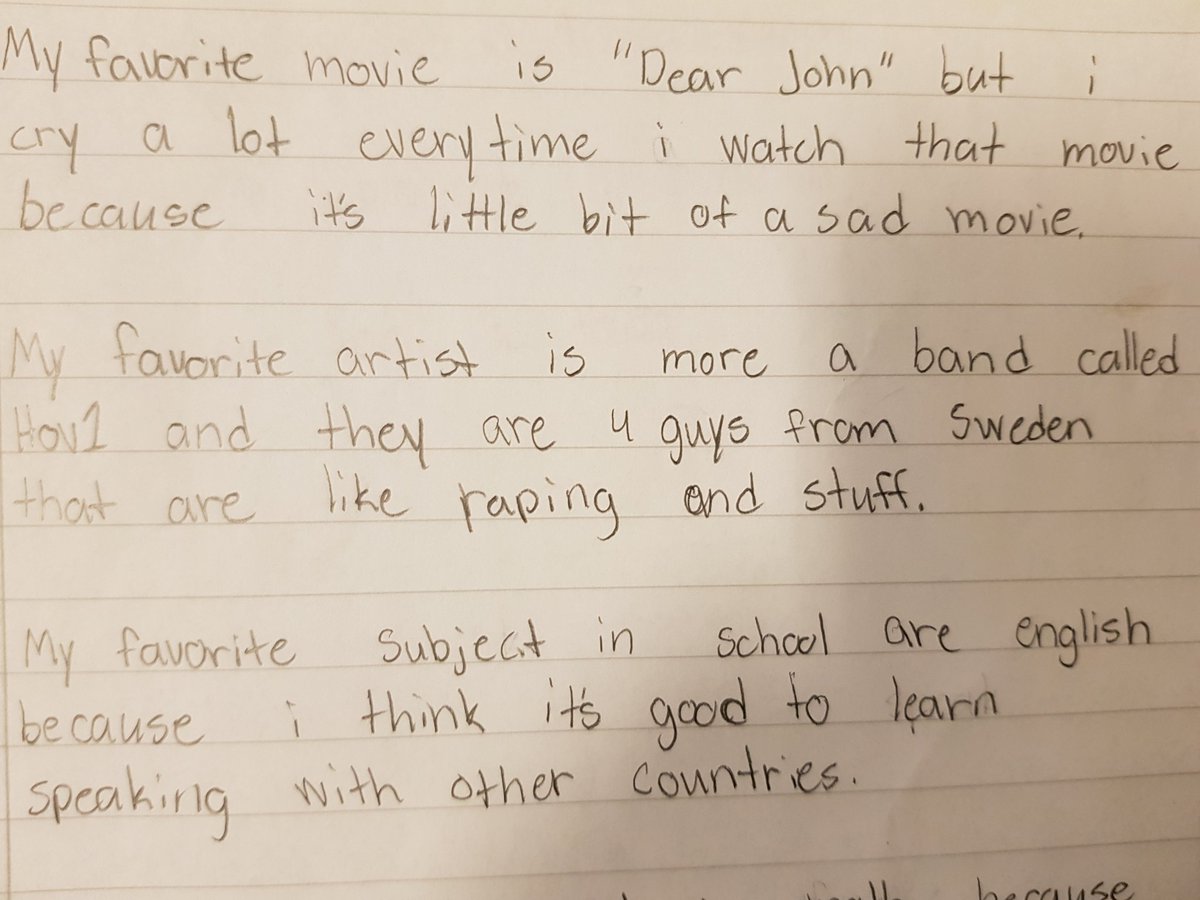 My favorite movie is "Dear John" but i
cry a lot everytime i watch that movie
because it's little bit of a sad movie.
My favorite artist is more a band called
Hov1 and they are 4 guys from Sweden
that are like raping and stuff.
My favorite subject in school are english
because i think it's good to learn
speaking with other countries.
because